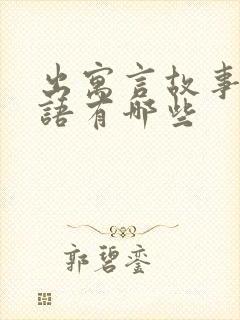 出寓言故事
語有哪些
郭碧銮